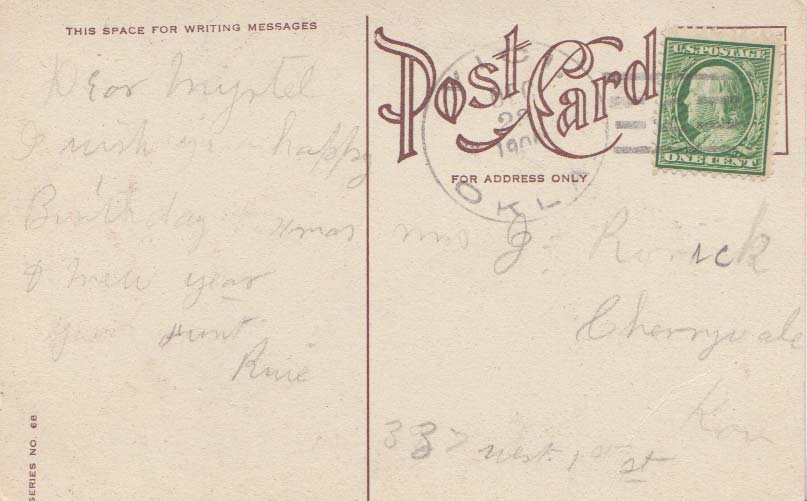 THIS SPACE FOR WRITING MESSAGES
Dear Myrtel
I wish you a happy
Birthday & Xmas
& New year
your Aunt
Rure
SERIES NO. 68
Post Card
FOR ADDRESS ONLY
DEC
OKLA
U.S. POSTAGE
ONE CENT
Mrs J. Rorick
Cherryvale
Kan
west st